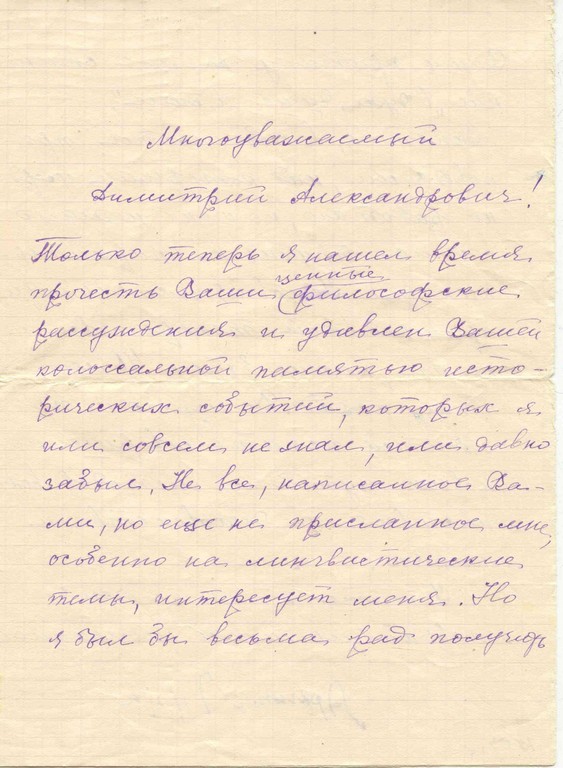 Многоуважаемый
Димитрий Александрович!
Только теперь я нашел время
ценные
прочесть Ваши философские
рассуждения и удивлен Вашей
колоссальной памятью исто-
рических событий, которых я
или совсем не знал, или давно
забыл. Не все, написанное Ва-
ми, но еще не присланное мне,
особенно на лингвистические
темы, интересует меня. Но
я был бы весьма рад получить